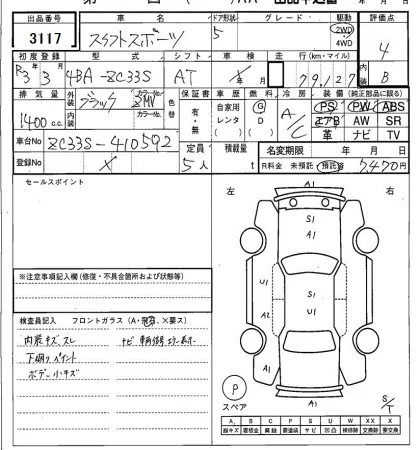 出品番号 車名 ドア形状 グレード 駆動 評価点
3117 スイフトスポーツ 5 2WD 4WD 4
初度登録 型式 シフト 車検 走行(km・マイル) 内装
R3年3月 4BA-ZC33S AT × 79,127 B
排気量 外装 ブラック カラーNo. ZMV 色替 保証書 有・無 車歴 自家用 レンタ 燃料 G D 冷房 A/C 装備(純正部品に限る) PS PW ABS
1400c.c. 内装 カラーNo. エアB AW SR
革 ナビ TV
車台No ZC33S-410592 定員 5人 積載量 t 名変期限 年 月 日
登録No × R料金 未預託 預託済 7470円
セールスポイント
左 右
A1
S1
A1
U1 S1 U1
A2 U1
A1
※注意事項記入欄(修復・不具合箇所および状態等)
検査員記入 フロントガラス(A・飛石、×要ス)
内装キズ、スレ ナビ
下廻りペイント
ボデー小キズ
P スペア
A1
S/T
A B C P S U W X XX ×
線キズ 塗装 サビ 凹凸 補修跡 交換跡 要交換